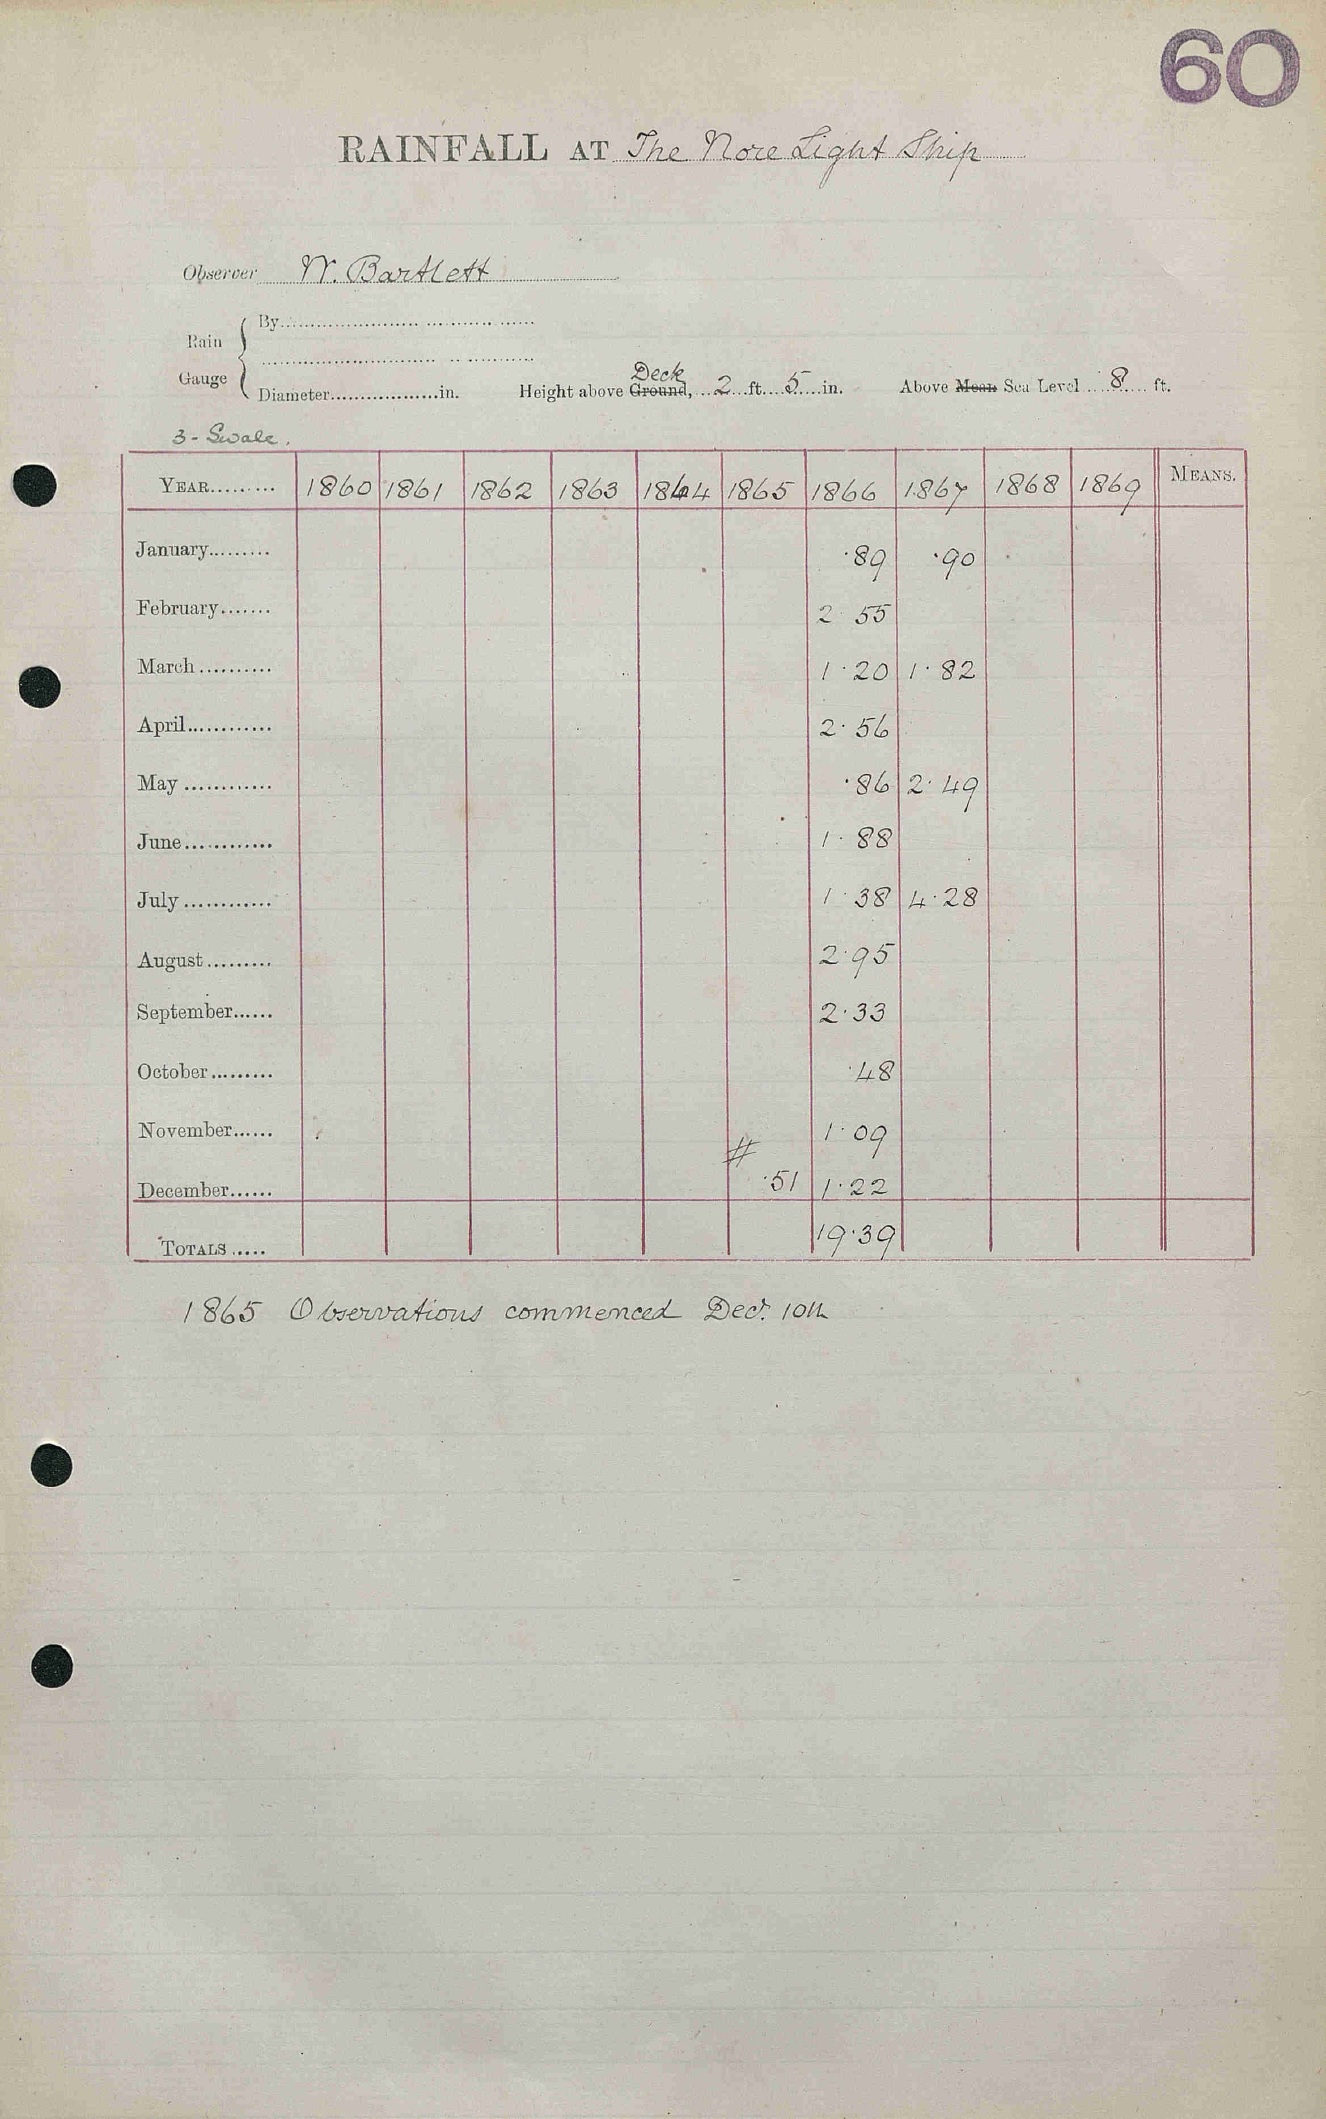 60
RAINFALL AT The Nore Light Ship
Observer W. Bartlett
Rain Gauge { By
Diameter in. Height above Ground, Deck 2 ft. 5 in. Above Mean Sea Level 8 ft.
3 - Swale.
YEAR 1860 1861 1862 1863 1864 1865 1866 1867 1868 1869 MEANS.
January ·89 ·90
February 2·55
March 1·20 1·82
April 2·56
May ·86 2·49
June 1·88
July 1·38 4·28
August 2·95
September 2·33
October ·48
November 1·09
December # ·51 1·22
TOTALS 19·39
1865 Observations commenced Decr. 10th